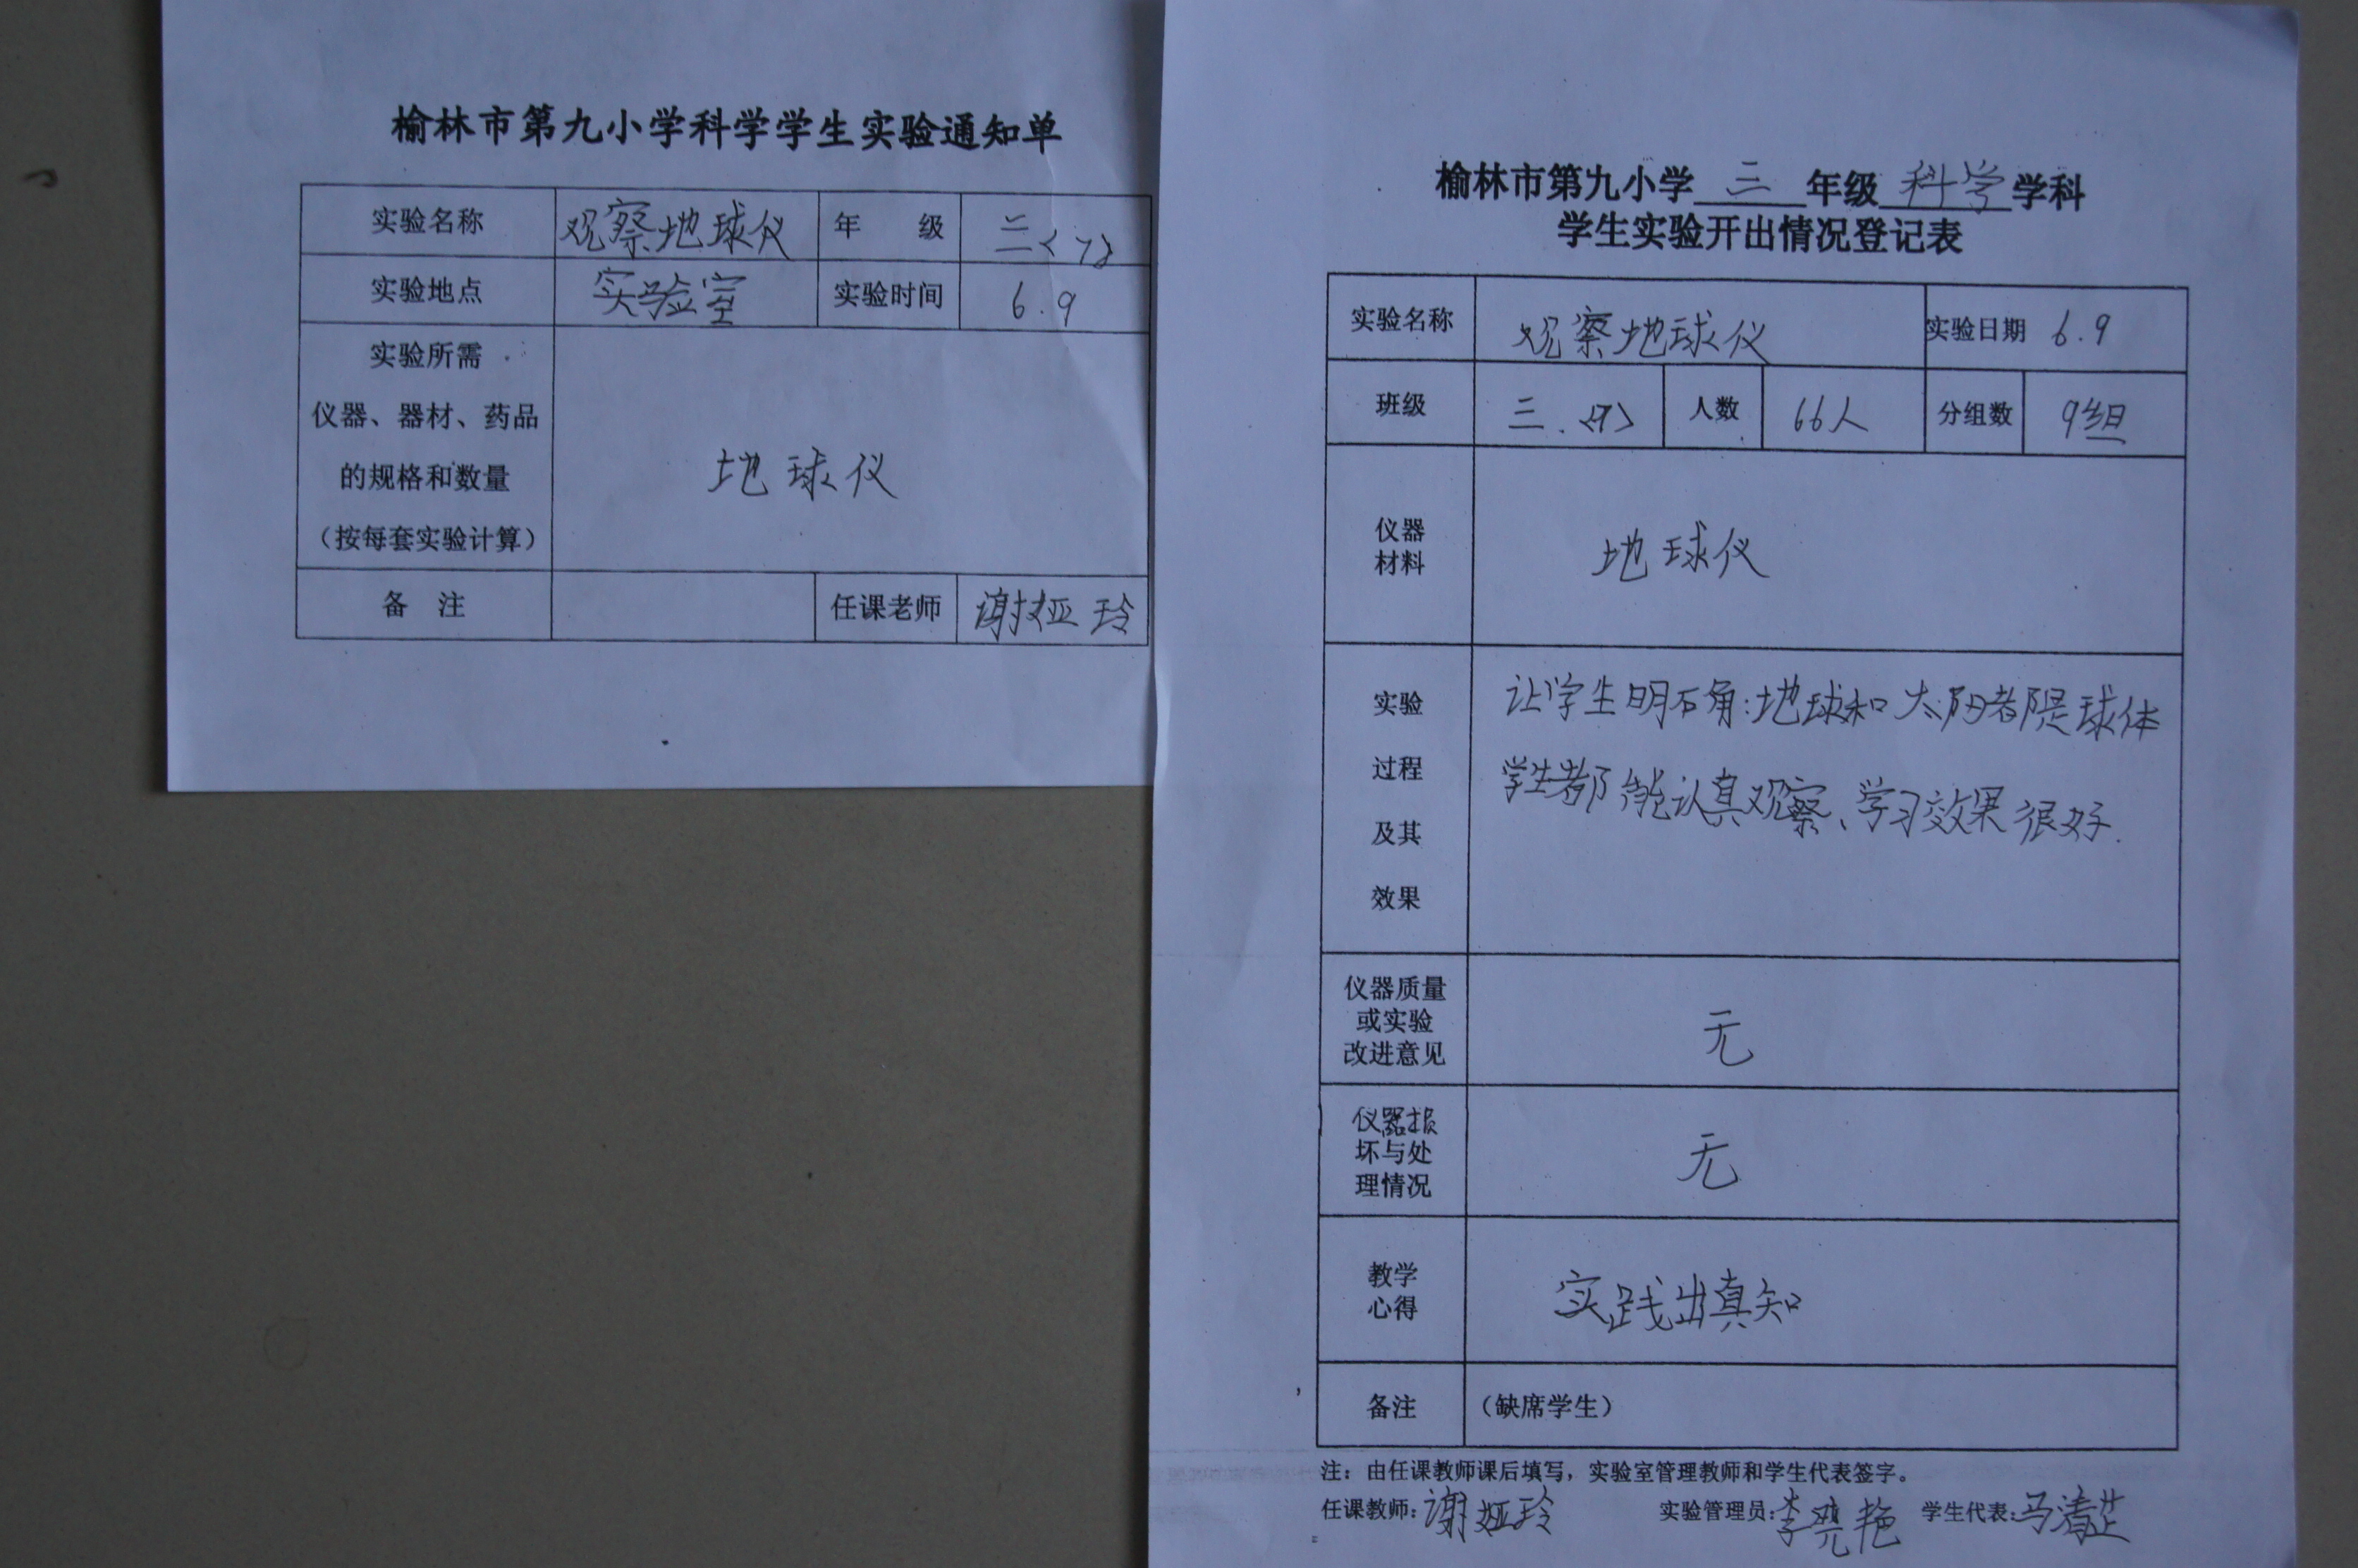 榆林市第九小学科学学生实验通知单
实验名称 观察地球仪 年 级 三<7>
实验地点 实验室 实验时间 6.9
实验所需
仪器、器材、药品
的规格和数量
（按每套实验计算）
地球仪
备 注 任课老师 谢娅玲
榆林市第九小学 三 年级 科学 学科
学生实验开出情况登记表
实验名称 观察地球仪 实验日期 6.9
班级 三.<7> 人数 66人 分组数 9组
仪器
材料
地球仪
实验
过程
及其
效果
让学生明确:地球和太阳都是球体
学生都能认真观察、学习效果很好.
仪器质量
或实验
改进意见
无
仪器损
坏与处
理情况
无
教学
心得
实践出真知
备注 （缺席学生）
注：由任课教师课后填写，实验室管理教师和学生代表签字。
任课教师:谢娅玲 实验管理员:李 艳 学生代表:马清芷